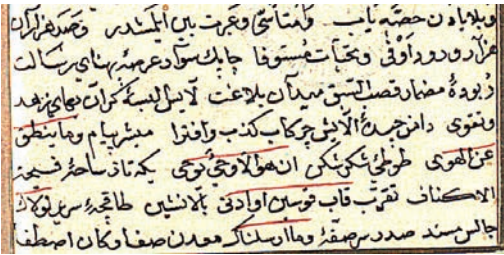 وبلا پایان حصه یاب و متأسی وعبرت بین ایلمشدر وصد هزاران
هزار درود اوفی وتحیات مستوفا چابك سوار عرصهٔ پهنای رسالت
ربودهٔ مضمار قصب السبق میدان بلاغت لابس البسهٔ کران بهای زهد
وتقوی دامن چیدهٔ آلایش چرکاب کذب وافترا مبشر پیام وما ینطق
عن الهوی طوطئ شکر شکن ان هو الا وحی یوحی یکه تاز ساحهٔ فسیحة
الاکناف تقرب قاب قوسین او ادنی بالانشین طاقچهٔ سریر لولاك
جالس مسند صدر صفهٔ وما ارسلناك معدن صفا وکان اصطفا